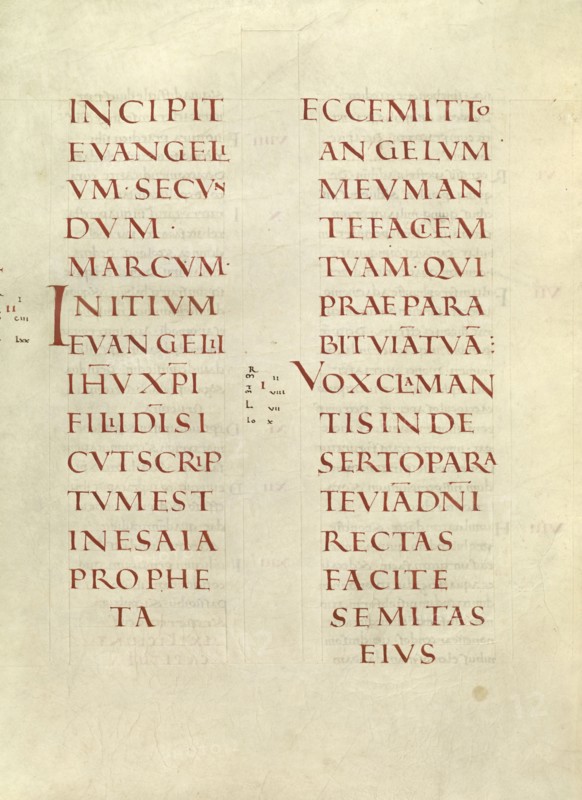 INCIPIT
EVANGELI
VM · SECVN
DVM ·
MARCVM ·
INITIVM
EVANGELII
IHV XPI
FILII DI SI
CVT SCRIP
TVM EST
IN ESAIA
PROPHE
TA
ECCE MITTO
ANGELVM
MEVM AN
TE FACIEM
TVAM · QVI
PRAEPARA
BIT VIĀ TVĀ :
VOX CLAMAN
TIS IN DE
SERTO PARA
TE VIĀ DNI
RECTAS
FACITE
SEMITAS
EIVS